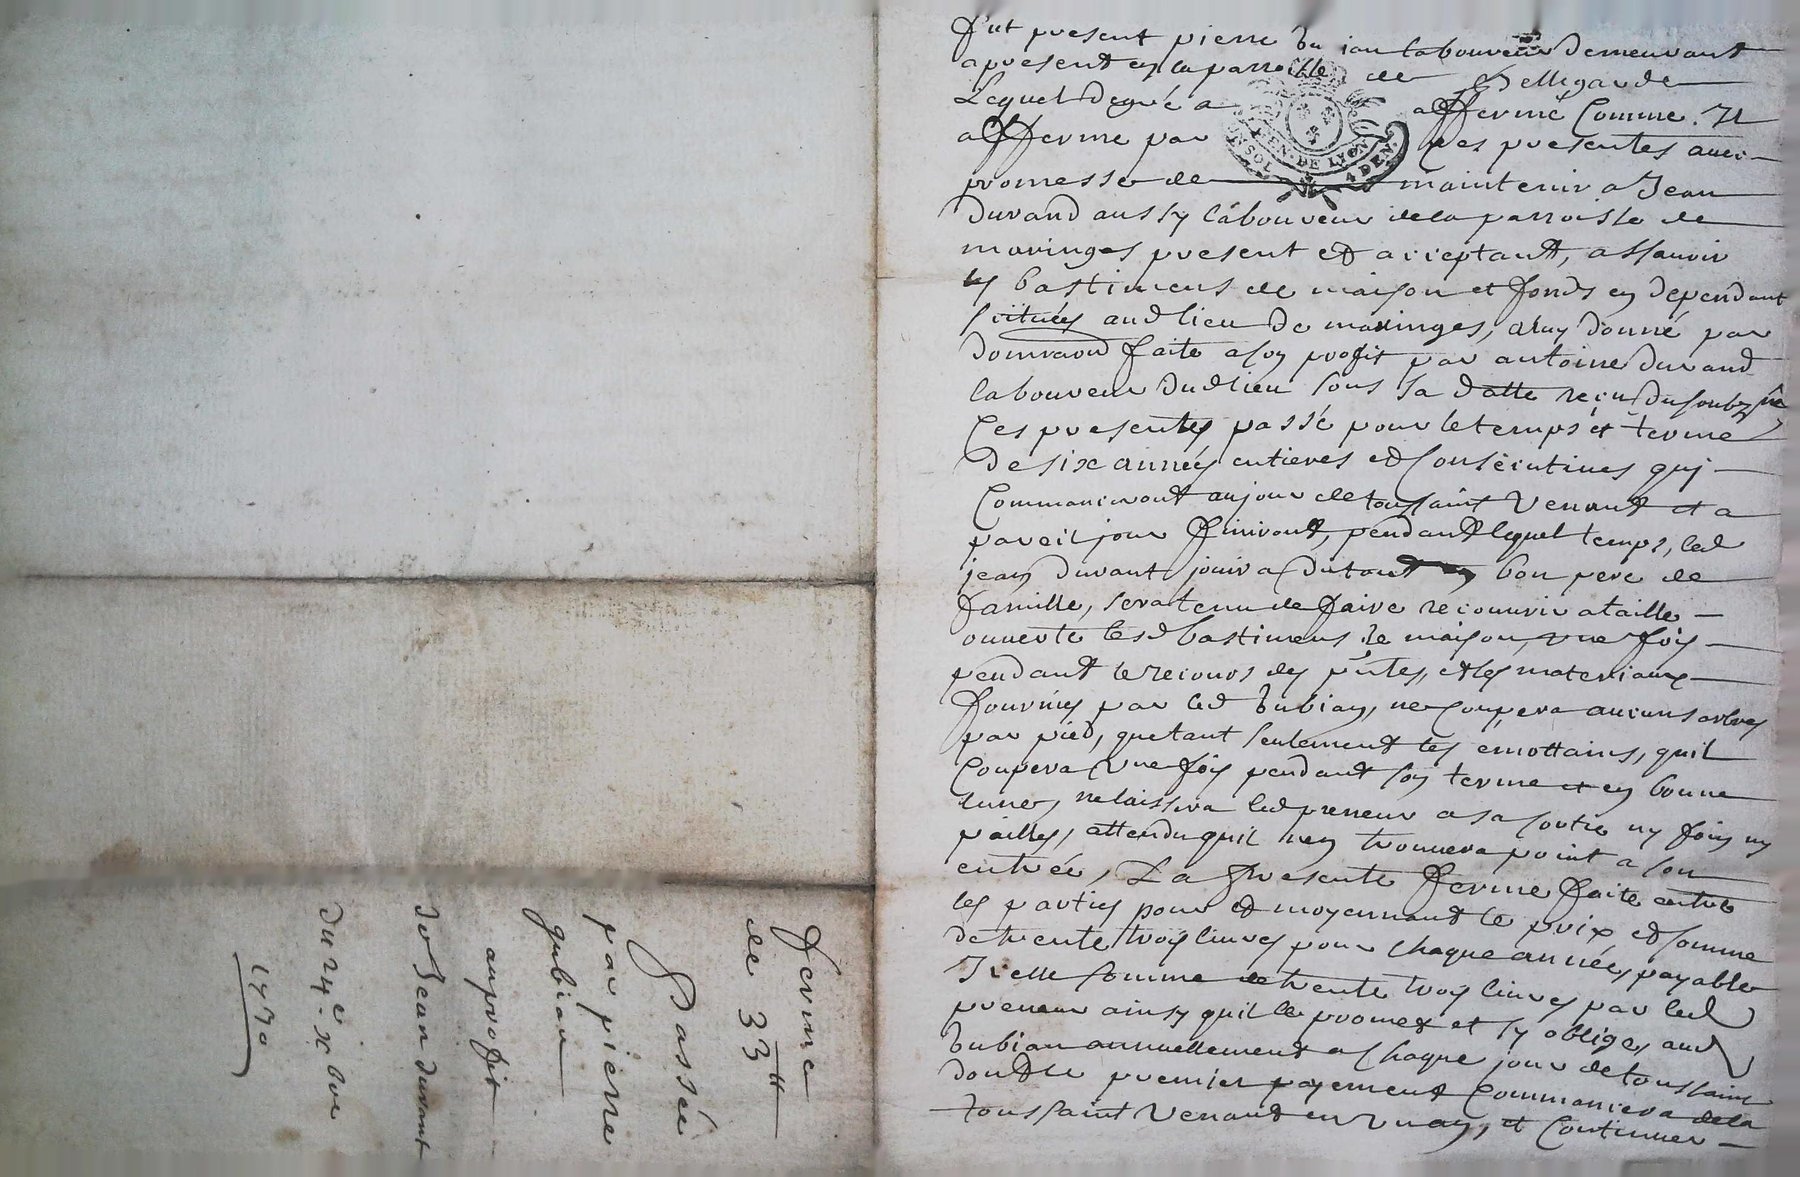 fut present pierre bu ian laboureur demeurant
apresent en la parroisse de Bellegarde
Lequel de gré a affermé comme Il
afferme par ces presentes avec
promesse de maintenir a Jean
durand aussy laboureur de la parroisse de
maringes present et acceptant, assavoir
les bastimens de maison et fonds en dependant
scituéz aud lieu de maringes, a luy donné par
faite a son profit par antoine durand
laboureur dud lieu sous sa datte reçu du
Ces presentes passé pour le temps et terme
de six années entieres et consécutives qui
Commanceront au jour de toussaint venant et a
pareil jour finiront, pendant lequel temps, led
jean durant jouira du tout en bon pere de
famille, sera tenu de faire recouvrir a taille
ouverte lesd bastimens de maison, une fois
pendant le recours des pntes, et les materiaux
fournies par led bubian, ne coupera aucuns arbres
par pied, que tant seulement les emottains, quil
coupera une fois pendant son terme et en bonne
lune, ne laissera led preneur a sa sortie ny foin ny
pailles, attendu quil nen trouvera point a son
entrée, La presente ferme faite entre
les parties pour et moyennant le prix et somme
de trente trois livres pour chaque année, payable
Icelle somme de trente trois livres par led
preneur ainsy quil le promet et sy oblige, aud
bubian annuellement a chaque jour de toussaint
dont le premier payement commancera de la
toussaint venant en un an, et continuer
EN. DE LYON
SOL. 4 DEN.
ferme
de 33 ℔
Passée
par pierre
gubian
au profit
de Jean durant
du 24e xbre
1730